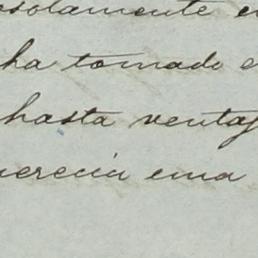 osolamente en
ha tomado e
hasta ventaj
merecia una